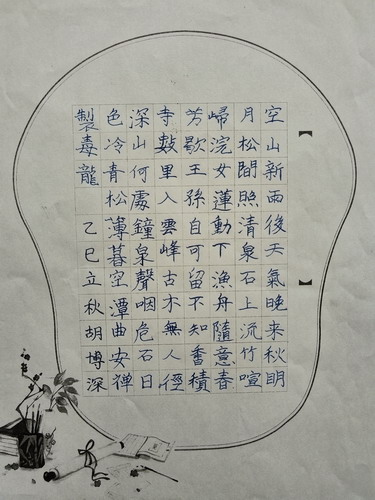 空山新雨後天氣晚来秋明
月松間照清泉石上流竹喧
歸浣女蓮動下漁舟隨意春
芳歇王孫自可留不知香積
寺數里入雲峰古木無人徑
深山何處鐘泉聲咽危石日
色冷青松薄暮空潭曲安禪
製毒龍 乙巳立秋胡博深